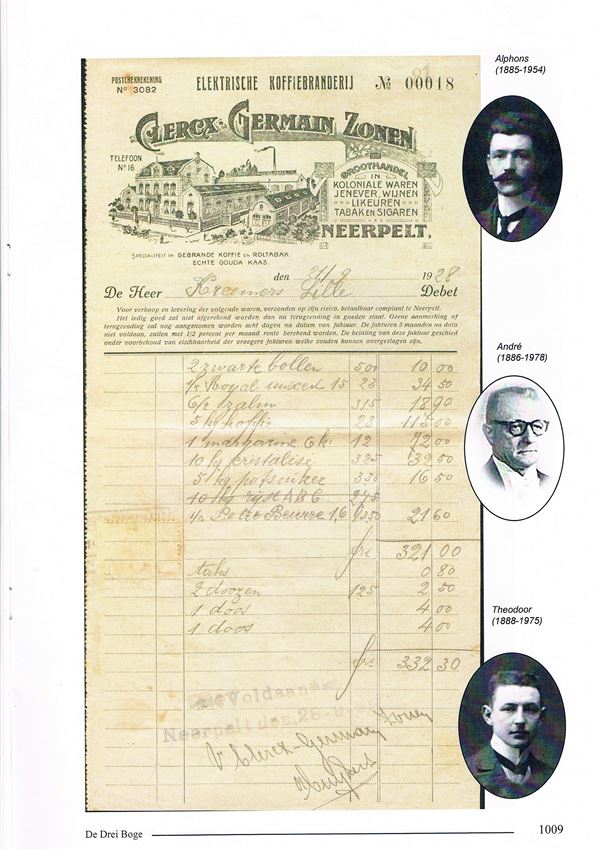 Alphons
(1885-1954)
POSTCHEKREKENING
No 3082
ELEKTRISCHE KOFFIEBRANDERIJ
№ 00018
CLERCX-GERMAIN ZONEN
TELEFOON
No 16
GROOTHANDEL
IN
KOLONIALE WAREN
JENEVER, WIJNEN
LIKEUREN
TABAK EN SIGAREN
NEERPELT.
SPECIALITEIT IN GEBRANDE KOFFIE EN ROLTABAK.
ECHTE GOUDA KAAS.
den 21/9 1928
De Heer Kreemers Lille Debet
Voor verkoop en levering der volgende waren, verzonden op zijn risico, betaalbaar comptant te Neerpelt.
Het ledig goed zal niet afgerekend worden dan na terugzending in goeden staat. Geene aanmerking of
terugzending zal nog aangenomen worden acht dagen na datum van faktuur. De fakturen 3 maanden na dato
niet voldaan, zullen met 1/2 percent per maand rente berekend worden. De betaling van deze faktuur geschied
onder voorbehoud van eischbaarheid der vroegere fakturen welke zouden kunnen overgeslagen zijn.
André
(1886-1978)
2 zwarte bollen 5,00 10 00
1/2 Royal mixed 15 23 34 50
6/2 zalm 315 18 90
5 kg koffie 23 115 00
1 margarine 6 k. 12 72 00
10 kg cristalisé 325 32 50
5 kg potsuiker 330 16 50
10 kg rijst ABC 245
1/2 Petit Beurre 1,6 1350 21 60
frs 321 00
0 80
2 doozen 125 2 50
1 doos 4 00
1 doos 4 00
frs 332 30
Theodoor
(1888-1975)
Voldaan
Neerpelt den, 28-9-
Vr Clercx-Germain Zonen
De Drei Boge
1009